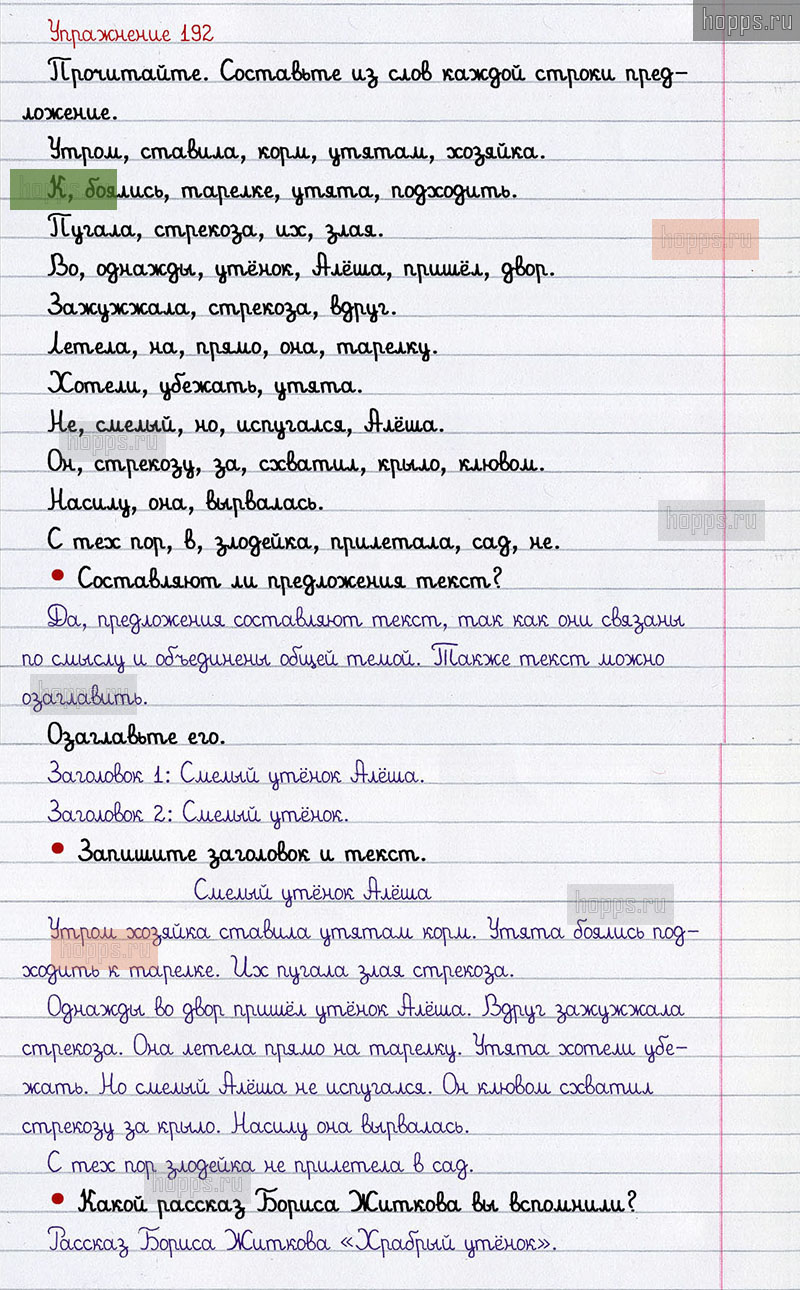 hopps.ru
Упражнение 192
Прочитайте. Составьте из слов каждой строки пред-
ложение.
Утром, ставила, корм, утятам, хозяйка.
К, боялись, тарелке, утята, подходить.
hopps.ru
Пугала, стрекоза, их, злая.
hopps.ru
Во, однажды, утёнок, Алёша, пришёл, двор.
Зажужжала, стрекоза, вдруг.
Летела, на, прямо, она, тарелку.
Хотели, убежать, утята.
Не, смелый, но, испугался, Алёша.
hopps.ru
Он, стрекозу, за, схватил, крыло, клювом.
Насилу, она, вырвалась.
hopps.ru
С тех пор, в, злодейка, прилетала, сад, не.
• Составляют ли предложения текст?
Да, предложения составляют текст, так как они связаны
по смыслу и объединены общей темой. Также текст можно
озаглавить.
hopps.ru
Озаглавьте его.
Заголовок 1: Смелый утёнок Алёша.
Заголовок 2: Смелый утёнок.
• Запишите заголовок и текст.
Смелый утёнок Алёша
hopps.ru
Утром хозяйка ставила утятам корм. Утята боялись под-
hopps.ru
ходить к тарелке. Их пугала злая стрекоза.
Однажды во двор пришёл утёнок Алёша. Вдруг зажужжала
стрекоза. Она летела прямо на тарелку. Утята хотели убе-
жать. Но смелый Алёша не испугался. Он клювом схватил
стрекозу за крыло. Насилу она вырвалась.
С тех пор злодейка не прилетела в сад.
hopps.ru
• Какой рассказ Бориса Житкова вы вспомнили?
Рассказ Бориса Житкова «Храбрый утёнок».